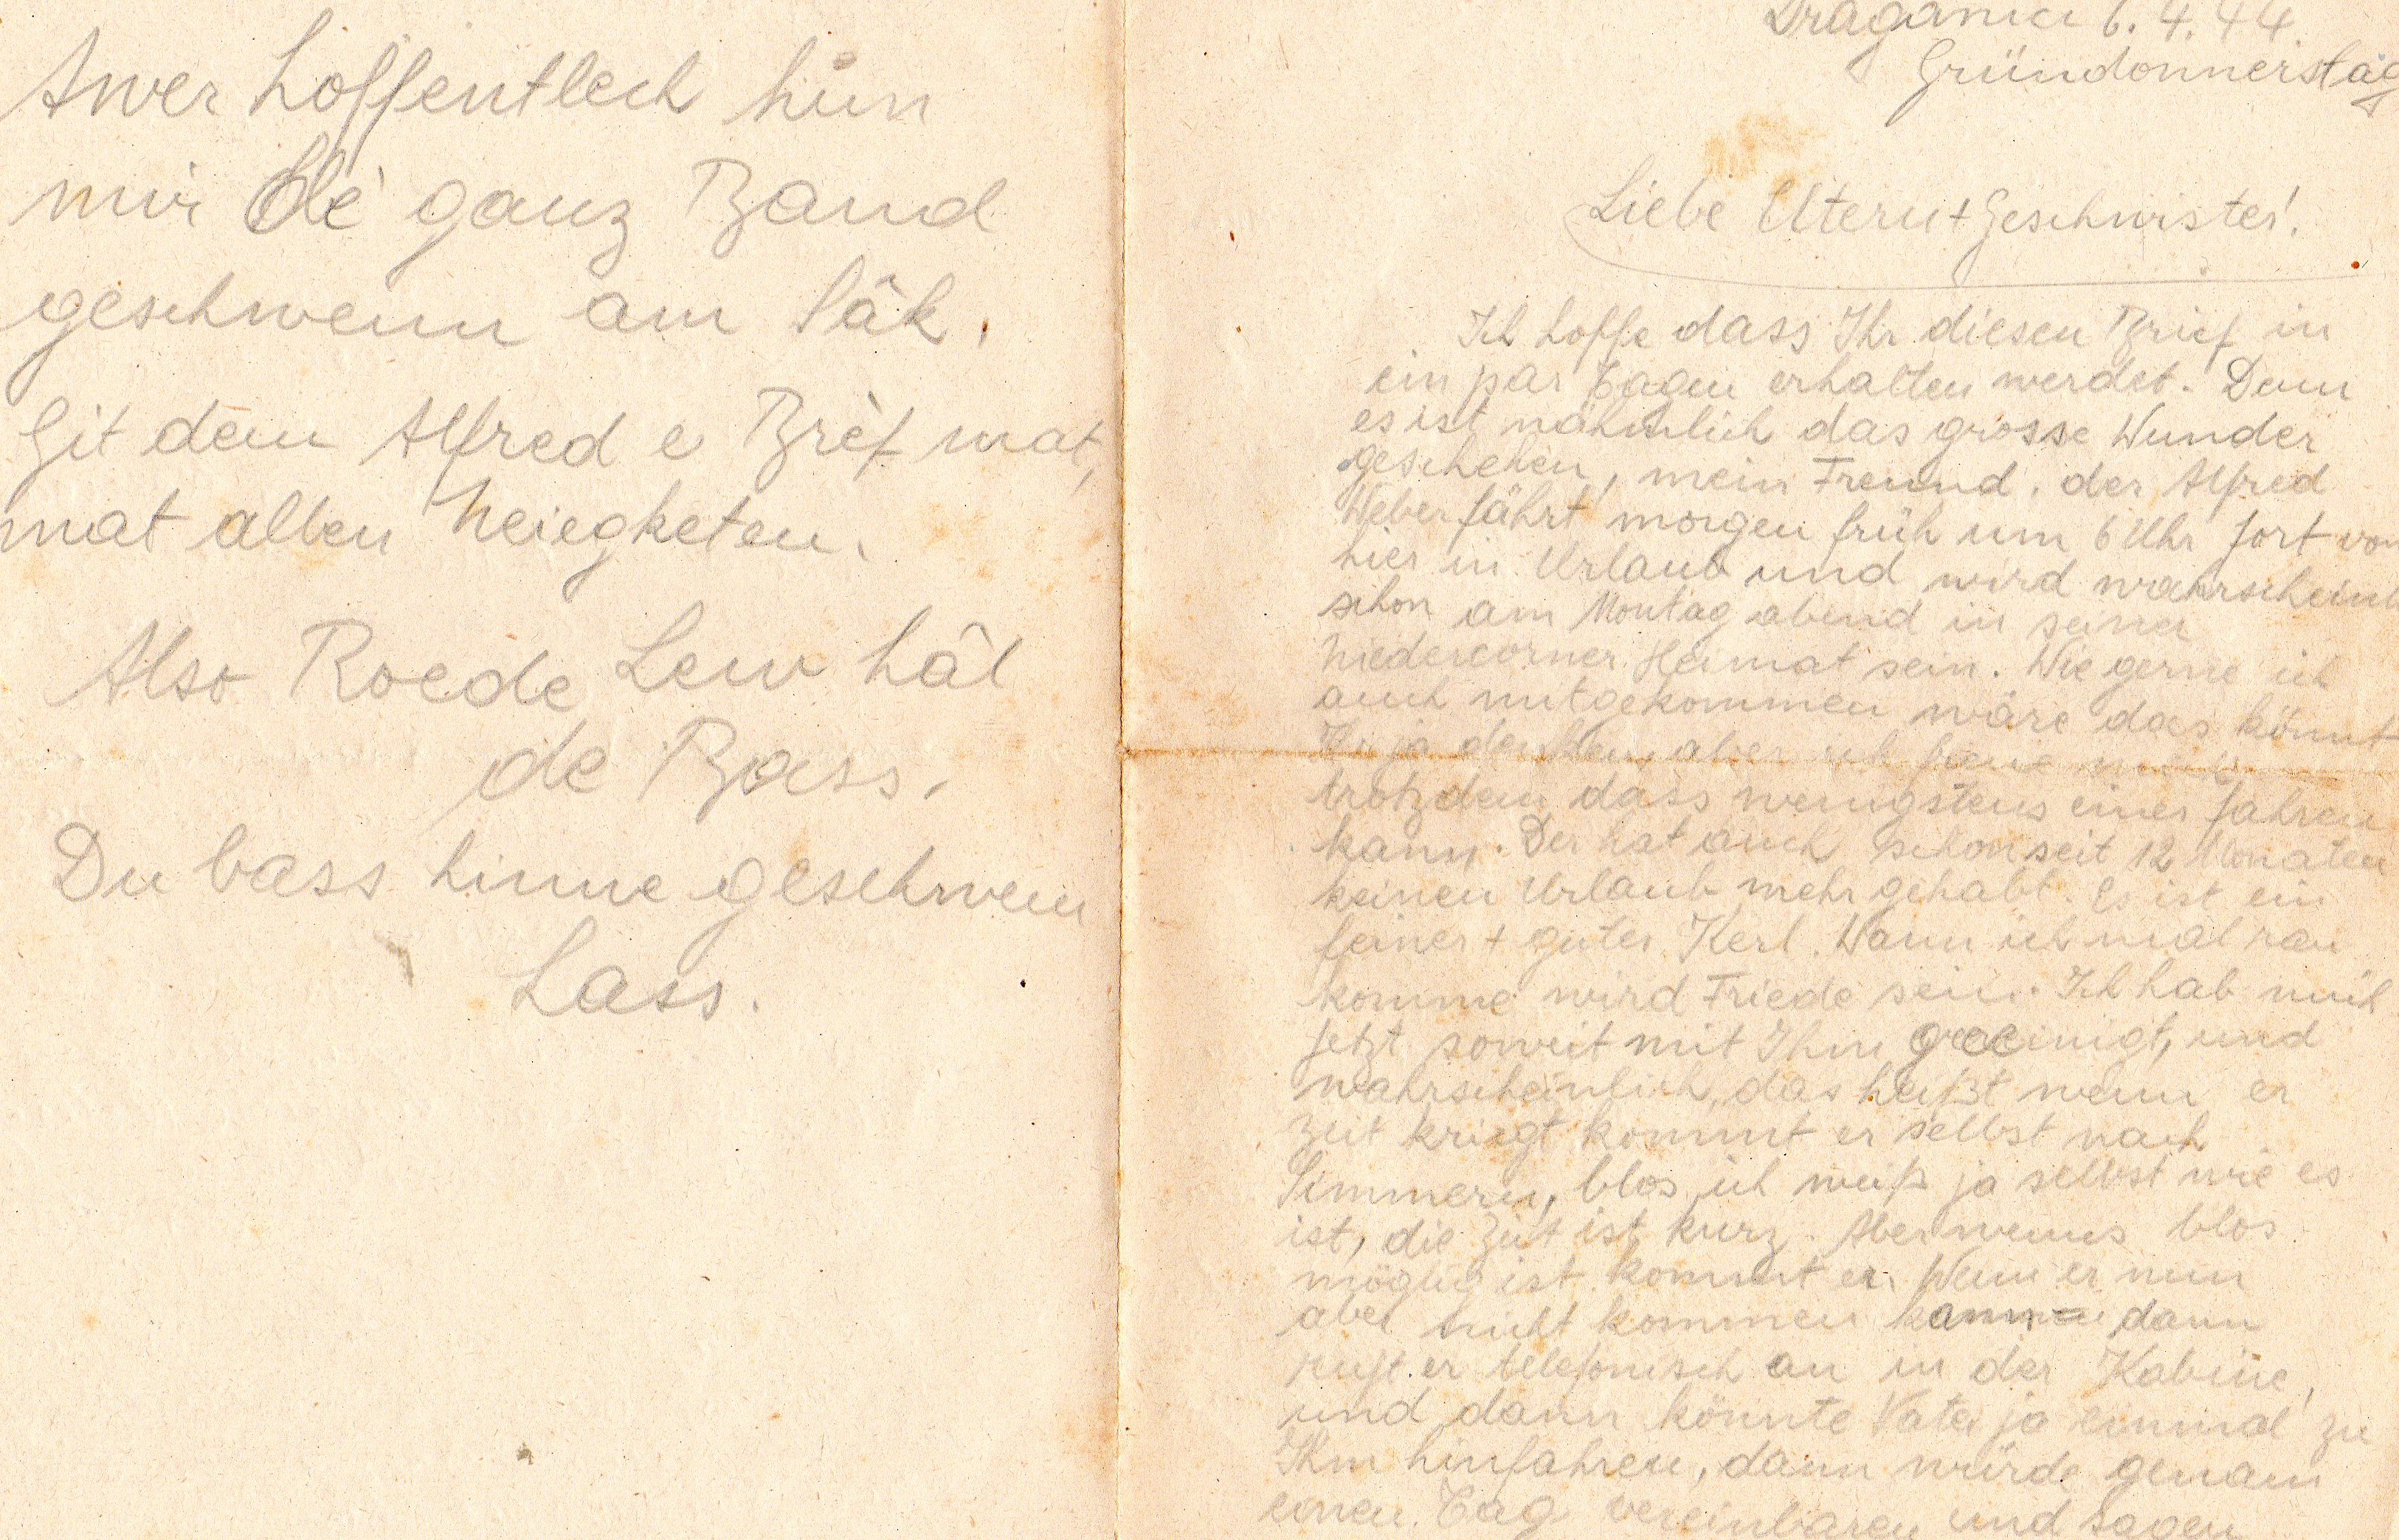 Awer hoffentlech hun
mir dé ganz Band
geschwenn am Säk.
Git dem Alfred e Brèf mat,
mat allen Neiegketen.
Also Roede Lew hâl
de Bass.
Du bass hinne geschwenn
Lass.
Draganici 6.4.44.
Gründonnerstag
Liebe Eltern + Geschwister!
Ich hoffe dass Ihr diesen Brief in
ein par Tagen erhalten werdet. Denn
es ist nähmlich das grosse Wunder
geschehen, mein Freund, der Alfred
Weber fährt morgen früh um 6 Uhr fort von
hier in Urlaub und wird wahrscheinl
schon am Montag abend in seiner
Niedercorner Heimat sein. Wie gerne ich
auch mitgekommen wäre das könnt
Ihr ja denken, aber ich freue mich
trotzdem dass wenigstens einer fahren
kann. Der hat auch schon seit 12 Monaten
keinen Urlaub mehr gehabt. Es ist ein
feiner + guter Kerl. Wann ich mal ran
komme wird Friede sein. Ich hab mich
jetzt soweit mit Ihm geeinigt, und
wahrscheinlich, das heißt wenn er
Zeit kriegt kommt er selbst nach
Simmern, blos ich weiß ja selbst wie es
ist, die Zeit ist kurz. Aber wenns blos
möglig ist kommt er. Wenn er nun
aber nicht kommen kann dann
ruft er telefonisch an in der Kabine,
und dann könnte Vater ja einmal zu
Ihm hinfahren, dann würde genau
einen Tag vereinbaren und sagen